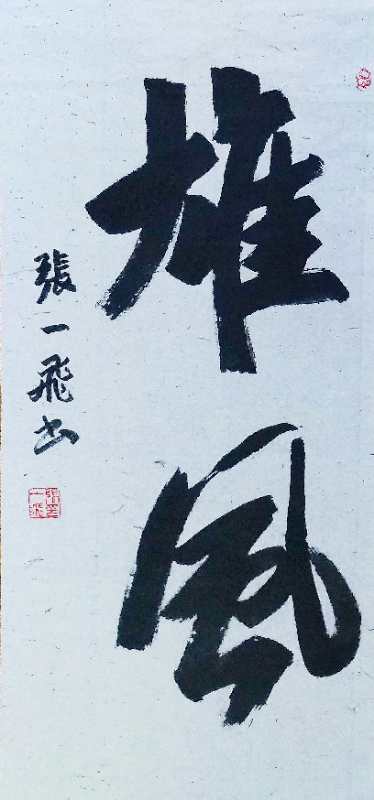 雄風
張一飛书